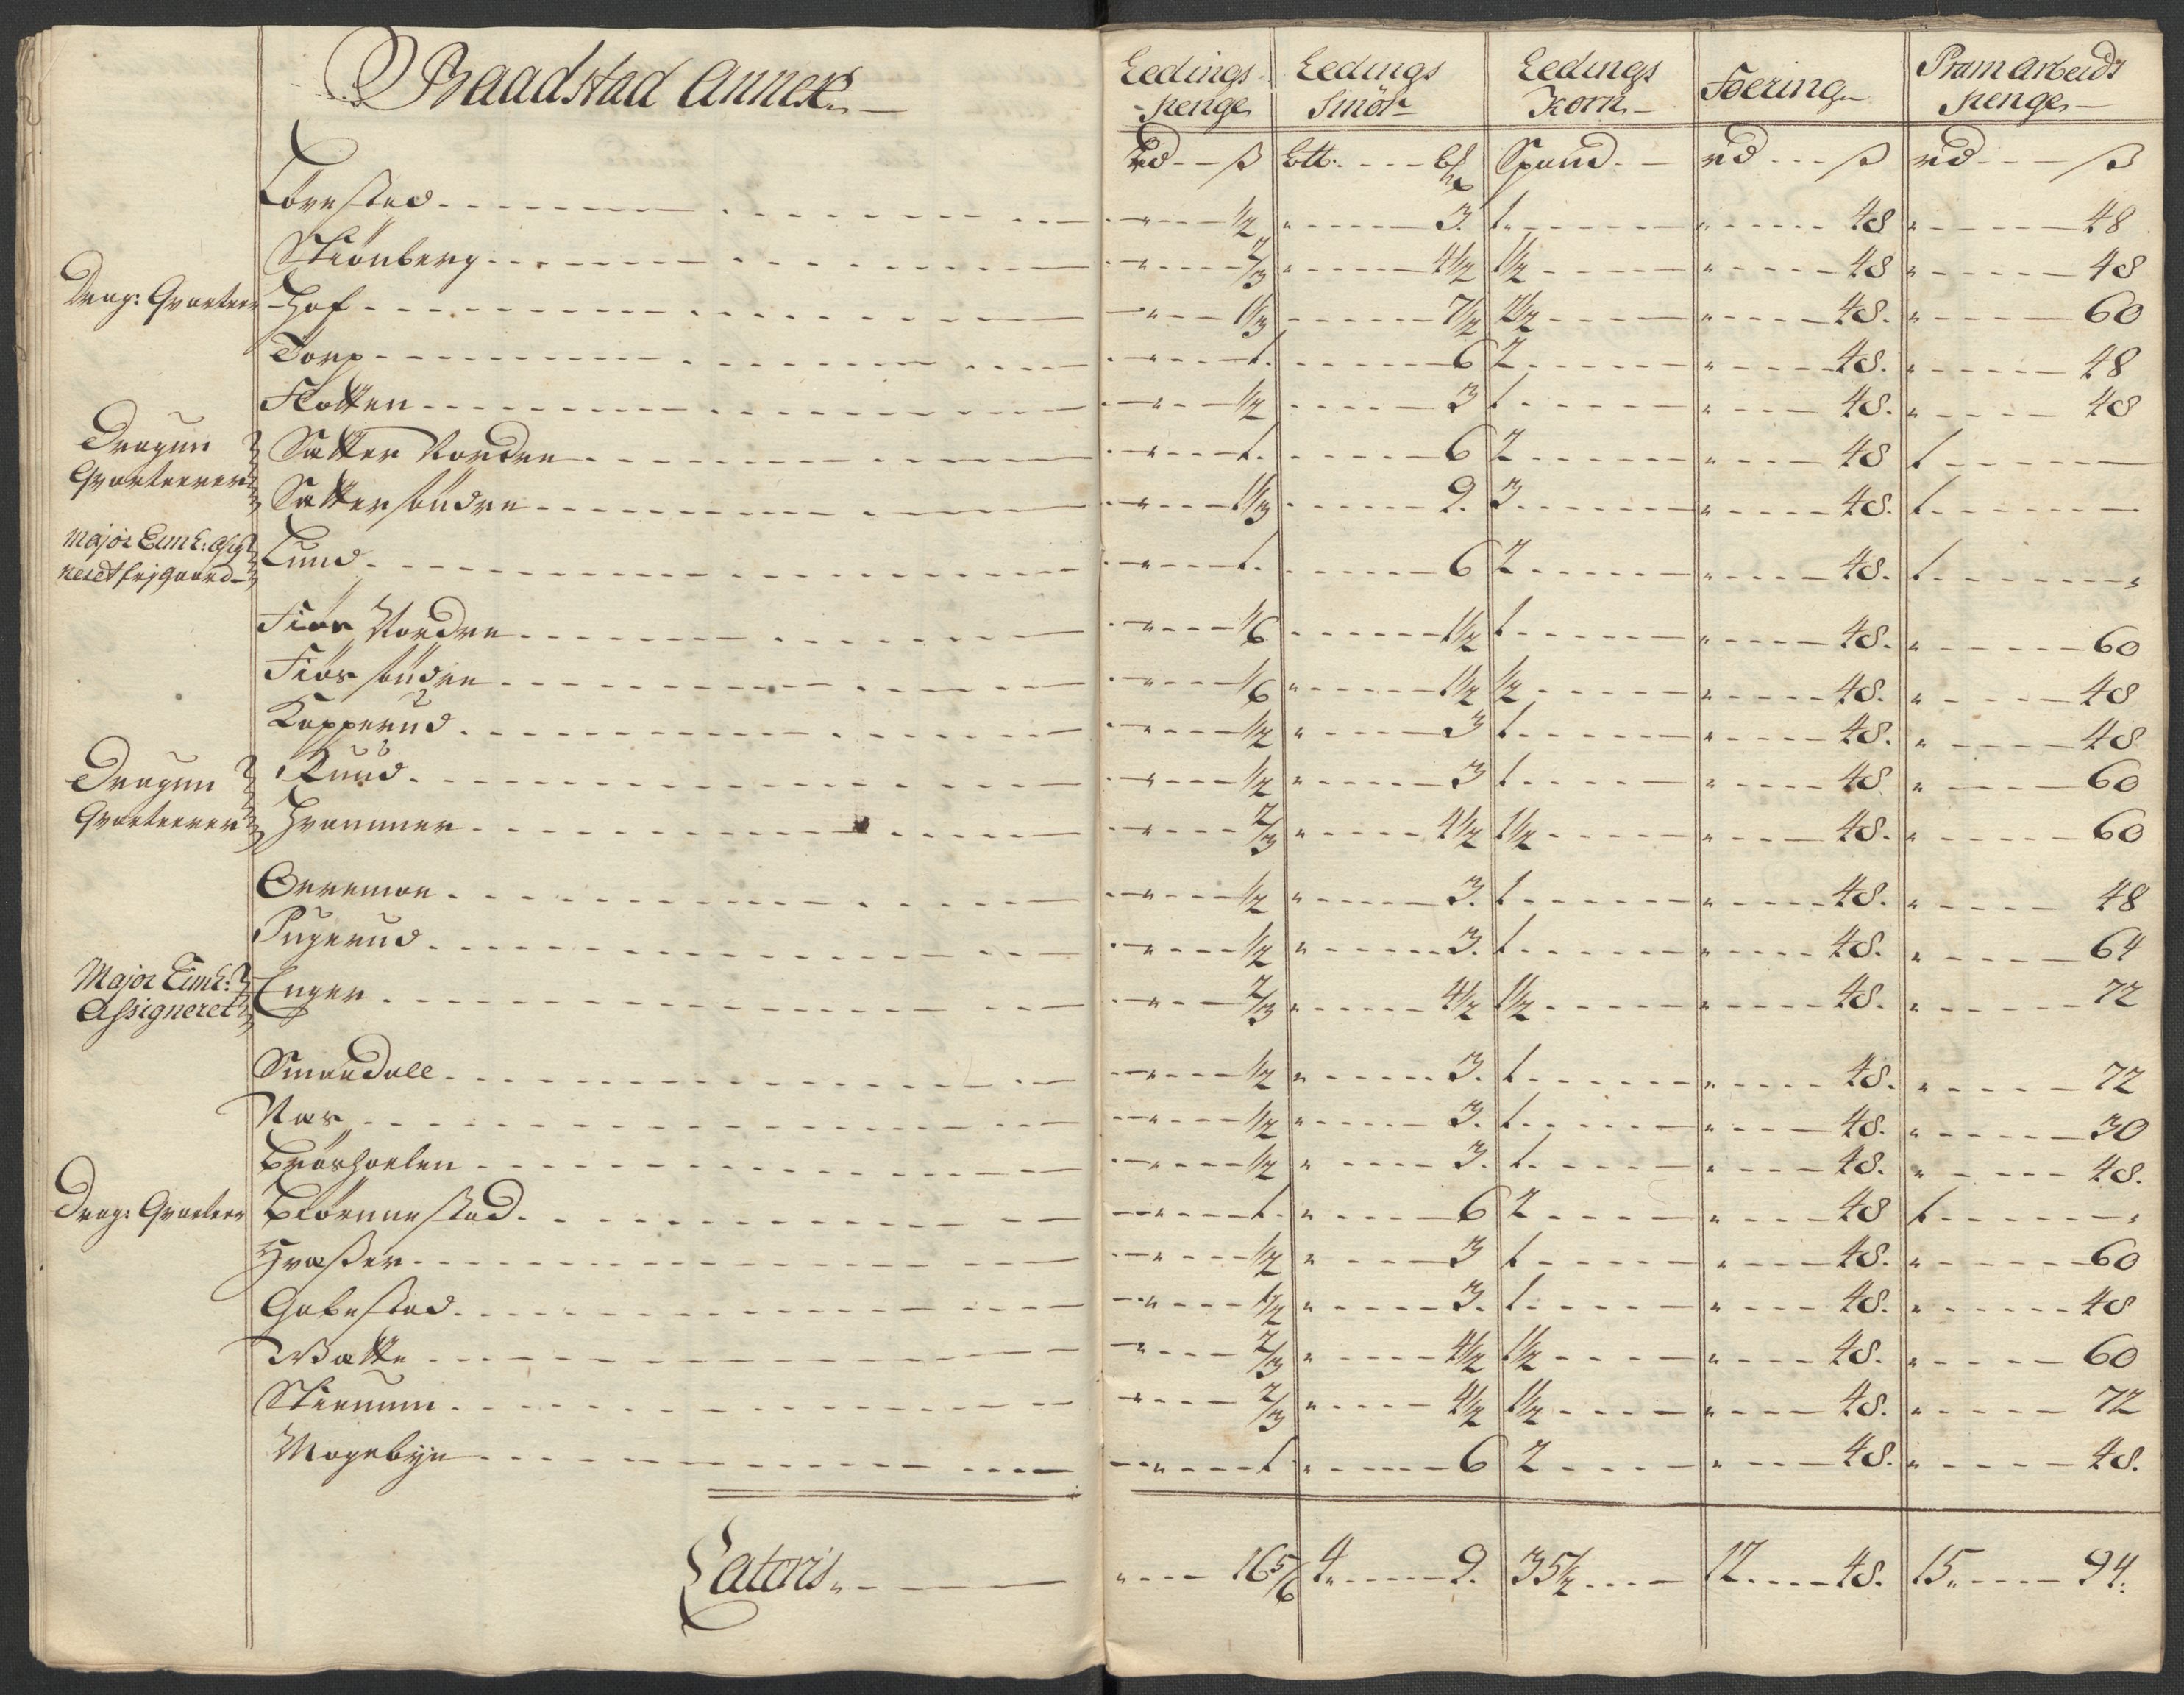 Baadstad Annex
Leedings penge | Leedings Smör | Leedings Korn | Foering | Pram arbeids penge
rd ß | ... | Spand | rd ß | rd ß
Löerstad " 1/2 | " 3. | 1 | " 48 | " 48
Skiönberg " 2/3 | " 4 1/2 | 1 1/2 | " 48 | " 48
Drag: Qvarteer Hof " 1 1/3 | 7 1/2 | 2 1/2 | " 48. | " 60
Torp " 1. | 6 | 2 | " 48. | " 48
Flotten " 1/2 | 3 | 1 | " 48. | " 48
Dragun Qvarteerer Sætter Nordre " 1. | 6 | 2 | " 48 | 1
Sætter söndre " 1 1/3 | 9. | 3 | " 48. | 1
Major frj gaard Lund " 1. | 6 | 2 | " 48. | 1 "
Fiös Nordre " 1/6 | 1 1/2 | 1 | " 48. | " 60
Fiös söndre " 1/6 | " 1 1/2 | 1/2 | " 48. | " 48
Kopperud " 1/2 | " 3 | 1 | " 48. | " 48
Dragun Qvarteerer Ruud " 1/2 | " 3 | 1 | " 48 | " 60
Hvammer " 2/3 | " 4 1/2 | 1 1/2 | " 48. | " 60
Orremoe " 1/2 | " 3. | 1 | " 48. | " 48
Pugerud " 1/2 | " 3. | 1 | " 48. | " 64
Major Assigneret Enger " 2/3 | " 4 1/2 | 1 1/2 | " 48. | " 72
Smaadall " 1/2 | " 3. | 1 | " 48. | " 72
Næs " 1/2 | " 3. | 1 | " 48. | " 30
Bröshoelen " 1/2 | " 3. | 1 | " 48. | " 48.
Drag: Qvarteer Biörnestad " 1. | " 6 | 2 | " 48 | 1 "
Hvaßer " 1/2 | " 3 | 1 | " 48. | " 60
Gabestad " 1/2 | " 3. | 1 | " 48. | " 48
Watte " 2/3 | " 4 1/2 | 1 1/2 | " 48. | " 60
Skinnum " 2/3 | " 4 1/2 | 1 1/2 | " 48. | " 72
Mogebÿe " 1 | " 6 | 2 | " 48. | " 48.
Lateris " 16 5/6 | 4 9. | 35 1/2 | 12 48. | 15 94.